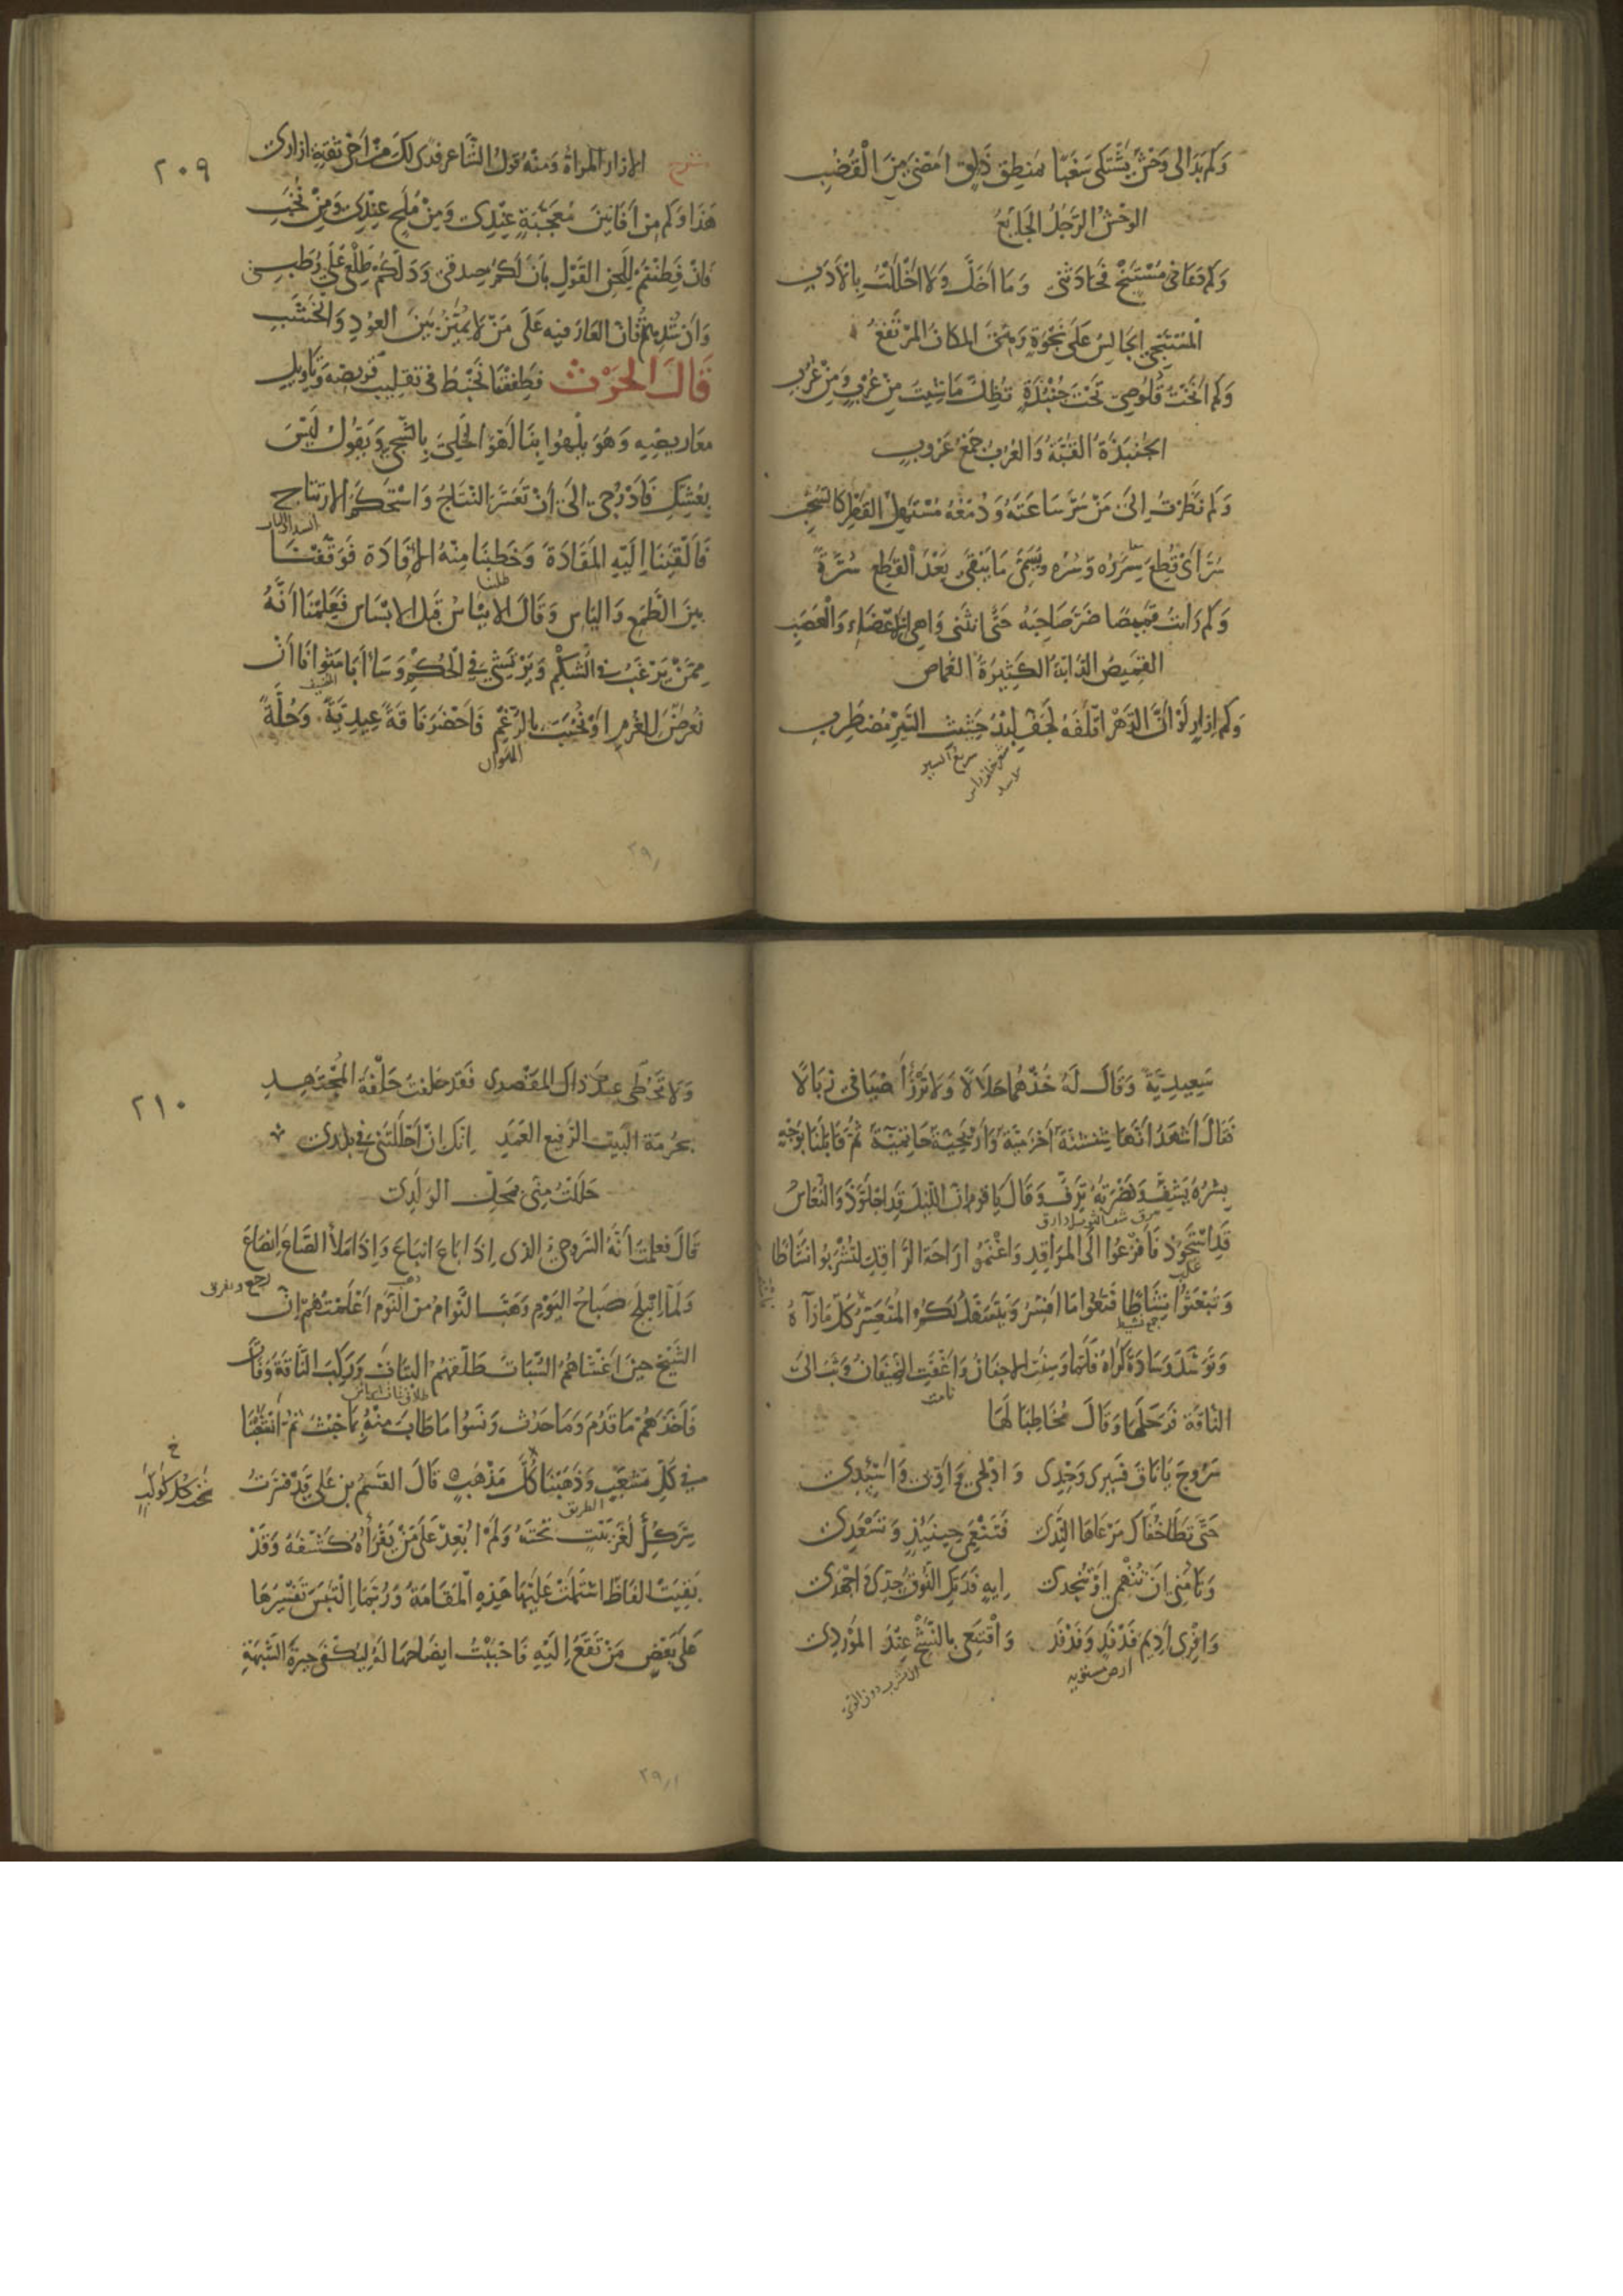 وَكَم بَدَا لِي وَحْشٌ يَشْتَكِي سَغَبًا بِمَنطِقٍ ذَلِقٍ امْضَى مِنَ الْقُضُبِ
الوَحْشُ الرَّجُلُ الجَايعُ
وَكَم دَعَانِي مُسْتَنْجٍ فَحَادَثَنِي وَمَا أَخَلَّ وَلَا أَخْلَلْتُ بِالْأَدَبِ
المُسْتَنْجِي الجَالِسُ عَلَى نَجْوَةٍ وَهِيَ المكَانُ المُرْتَفِعُ
وَكَم انَخْتُ قَلُوصِي تَحْتَ جُنْبُذَةٍ تُظِلُّ مَا شِيتَ مِنْ عُرْبٍ وَمِنْ
الجُنبُذَةُ القُبَّةُ وَالعُرُبُ جَمْعُ عَرُوبٍ
وَكَم نَظَرْتُ إِلَى مَنْ سُرَّ سَاعَتَهُ وَدَمْعُهُ مُسْتَهِلُّ القَطْرِ كَالسُّحُبِ
سُرَّ أَيْ قُطِعَ سَرَرُهُ وَسُرُّه وَيُسَمَّى مَا يَبْقَى بَعْدَ القَطْعِ سُرَّةً
وَكَم رَايتُ قَمِيصًا ضَرَّ صَاحِبَهُ حَتَّى انثَنَى وَاهِيَ الاعْضَاءِ وَالْعَصَبِ
القَمِيصُ الدَّابَّةُ الكَثِيرَةُ القُمَاصِ
وَكَم إِزَارٍ لَوْ أَنَّ الدَّهْرَ أَتْلَفَهُ لَجَفَّ لِبْدُ حَثِيثِ السَّيْرِ مُضطَرِبِ
سريع السير
شرح الازار المرأة وَمنْهُ قولُ الشَّاعر فدى لكَ مِنْ أَخِي ثِقَةٍ ازاري
٢٠٩
هَذَا وَكَم مِن أَفَانِينَ مُعجِبَةٍ عِنْدِي وَمِنْ مُلَحٍ عِنْدِي وَمِنْ نُخَبِ
فَانْ فَطَنْتُمْ لِلَحْنِ القَوْلِ بَانَ لَكُمْ صِدقِي وَدَلَّكُمْ طَلْعِي عَلَى رُطَبِي
وَانْ شُدِهتُمْ فَانَّ العَارَ فِيهِ عَلَى مَنْ لا يُمَيِّزُ بَيْنَ العُودِ وَالخَشَبِ
قَالَ الحَرْث فَطَفِقْنَا نَخْبِطُ فِي تَقْلِيبِ قَريضِهِ وَتَأوِيلِ
مَعَارِيضِهِ وَهُوَ يَلْهُوا بِنَا لَهْوَ الخَلِيِّ بِالشَّجِي وَيَقُولُ لَيْسَ
بِعُشِّكِ فَادْرُجِي إلَى أنْ تَعَسَّرَ النَّتَاجُ وَاسْتَحكَمَ الارتِتَاج
فَأَلْقَيْنَا إلَيْهِ المَقَادَةَ وَخَطَبْنَا مِنْهُ الإفَادَةَ فَوَقَفَنَا
طلبنا
بَيْنَ الطَّمَعِ وَاليَاسِ وَقَالَ الايناسُ قَبْلَ الابْسَاسِ فَعَلِمْنَا أَنَّهُ
مِمَّنْ يَرْغَبُ فِي الشُّكْمِ وَيَرتَشِي فِي الحُكْمِ وَسَاءَ أَبَا مَثْوَانَا أَنْ
المضيف
نُعرَّضَ لِلغُرْمِ اوْ نُخَيَّبَ بالرَّغْمِ فَاحْضَرَ نَاقَةً عِيدِيَّةً وَحُلَّةً
الهوان
سَعِيدِيَّةً وَقَالَ لَهُ خُذْهُمَا حَلَالًا وَلَا تَرْزَأْ أَضيَافِي زِبَالًا
فَقَالَ أَشْهَدُ أَنَّهَا شِنْشِنَةٌ أَخْزَمِيَّةٌ وَأَرْيَحِيَّةٌ حَاتِمِيَّةٌ ثُمَّ قَابَلَنَا بِوَجْهٍ
بِشْرُهُ يَشِفُّ وَنَضْرَتُهُ تَرِفُّ وَقَالَ يَا قومِ انَّ اللَّيْلَ قَدِ اجْلَوَّذَ وَالنُّعَاسُ
قَدِ اسْتَحْوَذَ فَافْزَعُوا الَى المَرَاقِدِ وَاغْتَنِمُوا رَاحَةَ الرَّاقِدِ لِتَشْرَبُوا نَشَاطًا
غلب
وَتُبْعَثُوا نِشَاطًا فَتَعُوا مَا افَسِّرُ وَيَتَسَهَّلُ لَكُمُ المُتَعَسِّرُ فكُلٌّ
جمع نشيط
وَتَوَسَّدَ وِسَادَةَ كَرَاهُ فَلَمَّا وَسِنَتِ الاجفَانُ وَأغْفَتِ الضِّيفَانُ وَثَبَ الَى
نامت
النَّاقَةِ فَرَحَلَهَا وَقَالَ مُخَاطِبًا لَهَا
سَرُوجَ يَا نَاقَ فَسِيرِي وَخِدِي وَادْلِجِي وَاوِّبِي وَاسْئِدِي
حَتَّى تَطَا خُفَّاكِ مَرْعَاهَا النَّدِي فَتَنْعَمِي حِينَئِذٍ وَتَسْعَدِي
وَتَامَنِي انْ تُتْهِمِي اوْ تُنْجِدِي إِيهِ فَدَتْكِ النُّوقُ جِدِّي وَاجْهَدِي
وَافْرِي أَدِيمَ فَدْفَدٍ وَفَدْفَدِ وَاقْتَنِعِي بِالنَّشْحِ عِنْدَ المَوْرِدِ
ارض مستوية
الشرب دون الري
وَلَا تَحُطِّي عِنْدَ ذَاكَ المَقصدِ فَقَدْ حَلَفْتُ حَلْفَةَ المُجْتَهِدِ
٢١٠
بِحُرمَةِ البَيْتِ الرَّفِيعِ العَمَدِ إِنَّكِ انْ أَحْلَلْتِنِي فِي بَلَدِي
حَلَلْتِ مِنِّي بِمَحَلِّ الوَلَدِ
قَالَ فَعلِمتُ أَنَّهُ السَّروجِيُّ الذي إِذَا بَاعَ انبَاعَ وَإِذَا مَلأَ الصَّاعَ انصَاعَ
رجع وتفرق
وَلَمَّا انْبَلَجَ صَبَاحُ اليَوْمِ وَهَبَّ النُّوَّامُ مِنَ النَّوْمِ أَعْلَمْتُهُمْ انَّ
الشَّيْخَ حِينَ اغْشَاهُمُ السُّبَاتَ طَلَّقَهُمُ البَتَاتَ وَرَكِبَ النَّاقَةَ وَفَاتَ
فَأَخَذَهُمْ مَا قَدُمَ وَمَا حَدُث وَنَسُوا مَا طَابَ مِنْهُ بِمَا خَبُثَ ثُمَّ انْشَعَبْنَا
فِي كُلِّ مَشْعَبٍ وَذَهَبْنَا كُلَّ مَذْهَبٍ قَالَ القَسِمُ بن عَلِي قَدْ فَسَّرْتُ
خ
تحت كل كوكب
الطريق
سِرَّ كُلِّ لُغْزٍ تَحْتَهُ وَلَمْ أُبْعِدْ عَلَى مَنْ يَقْرَأُهُ كَشْفَهُ وَقَدْ
بَقِيَتْ الفَاظٌ اشتَمَلَتْ عَلَيْهَا هَذِهِ المَقَامَةُ وَرُبَّمَا التَبَسَ تَفْسِيرُهَا
عَلَى بَعْضِ مَنْ تَقَعُ إِلَيْهِ فَاحْبَبْتُ ايضَاحَهَا لَهُ لِيُكْفَى حَيرَةَ الشُّبْهَةِ